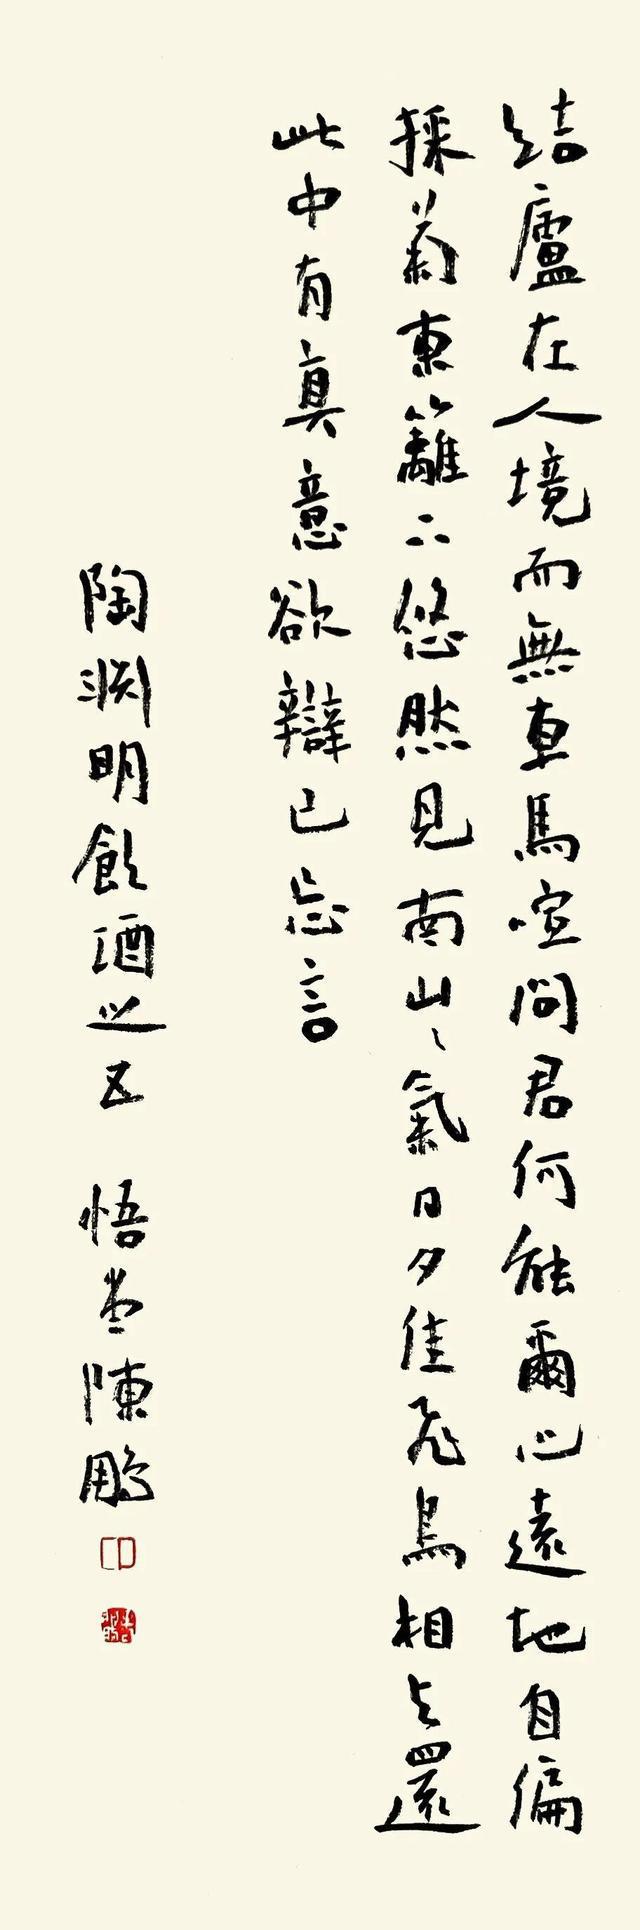 結廬在人境而無車馬喧問君何能爾心遠地自偏
採菊東籬下悠然見南山〻氣日夕佳飛鳥相与還
此中有真意欲辯已忘言
陶渊明飲酒之五 悟堂陳鵬